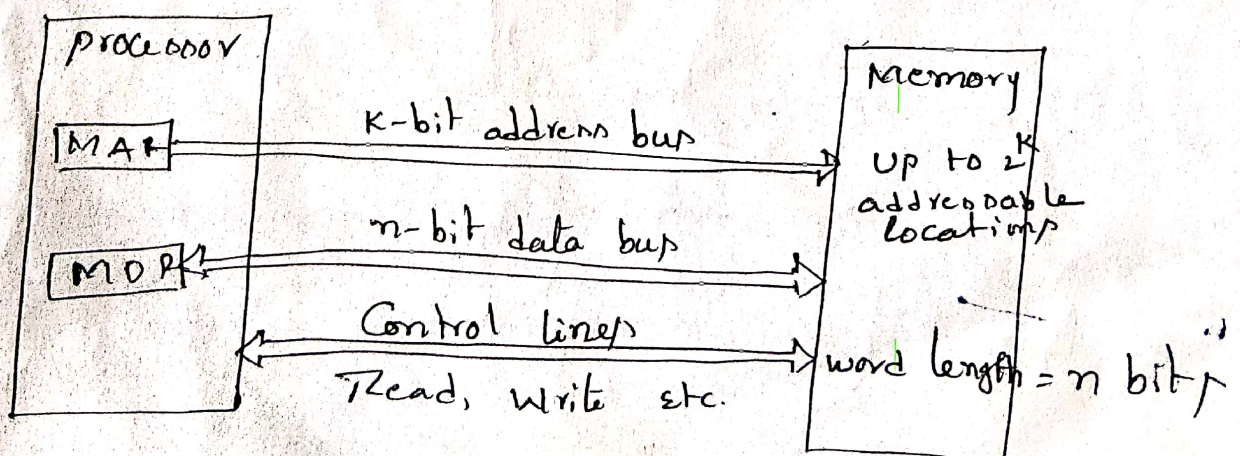 processor
MAR
MDR
K-bit address bus
n-bit data bus
Control lines
Read, Write etc.
Memory
up to 2^K
addressable
locations
word length = n bits